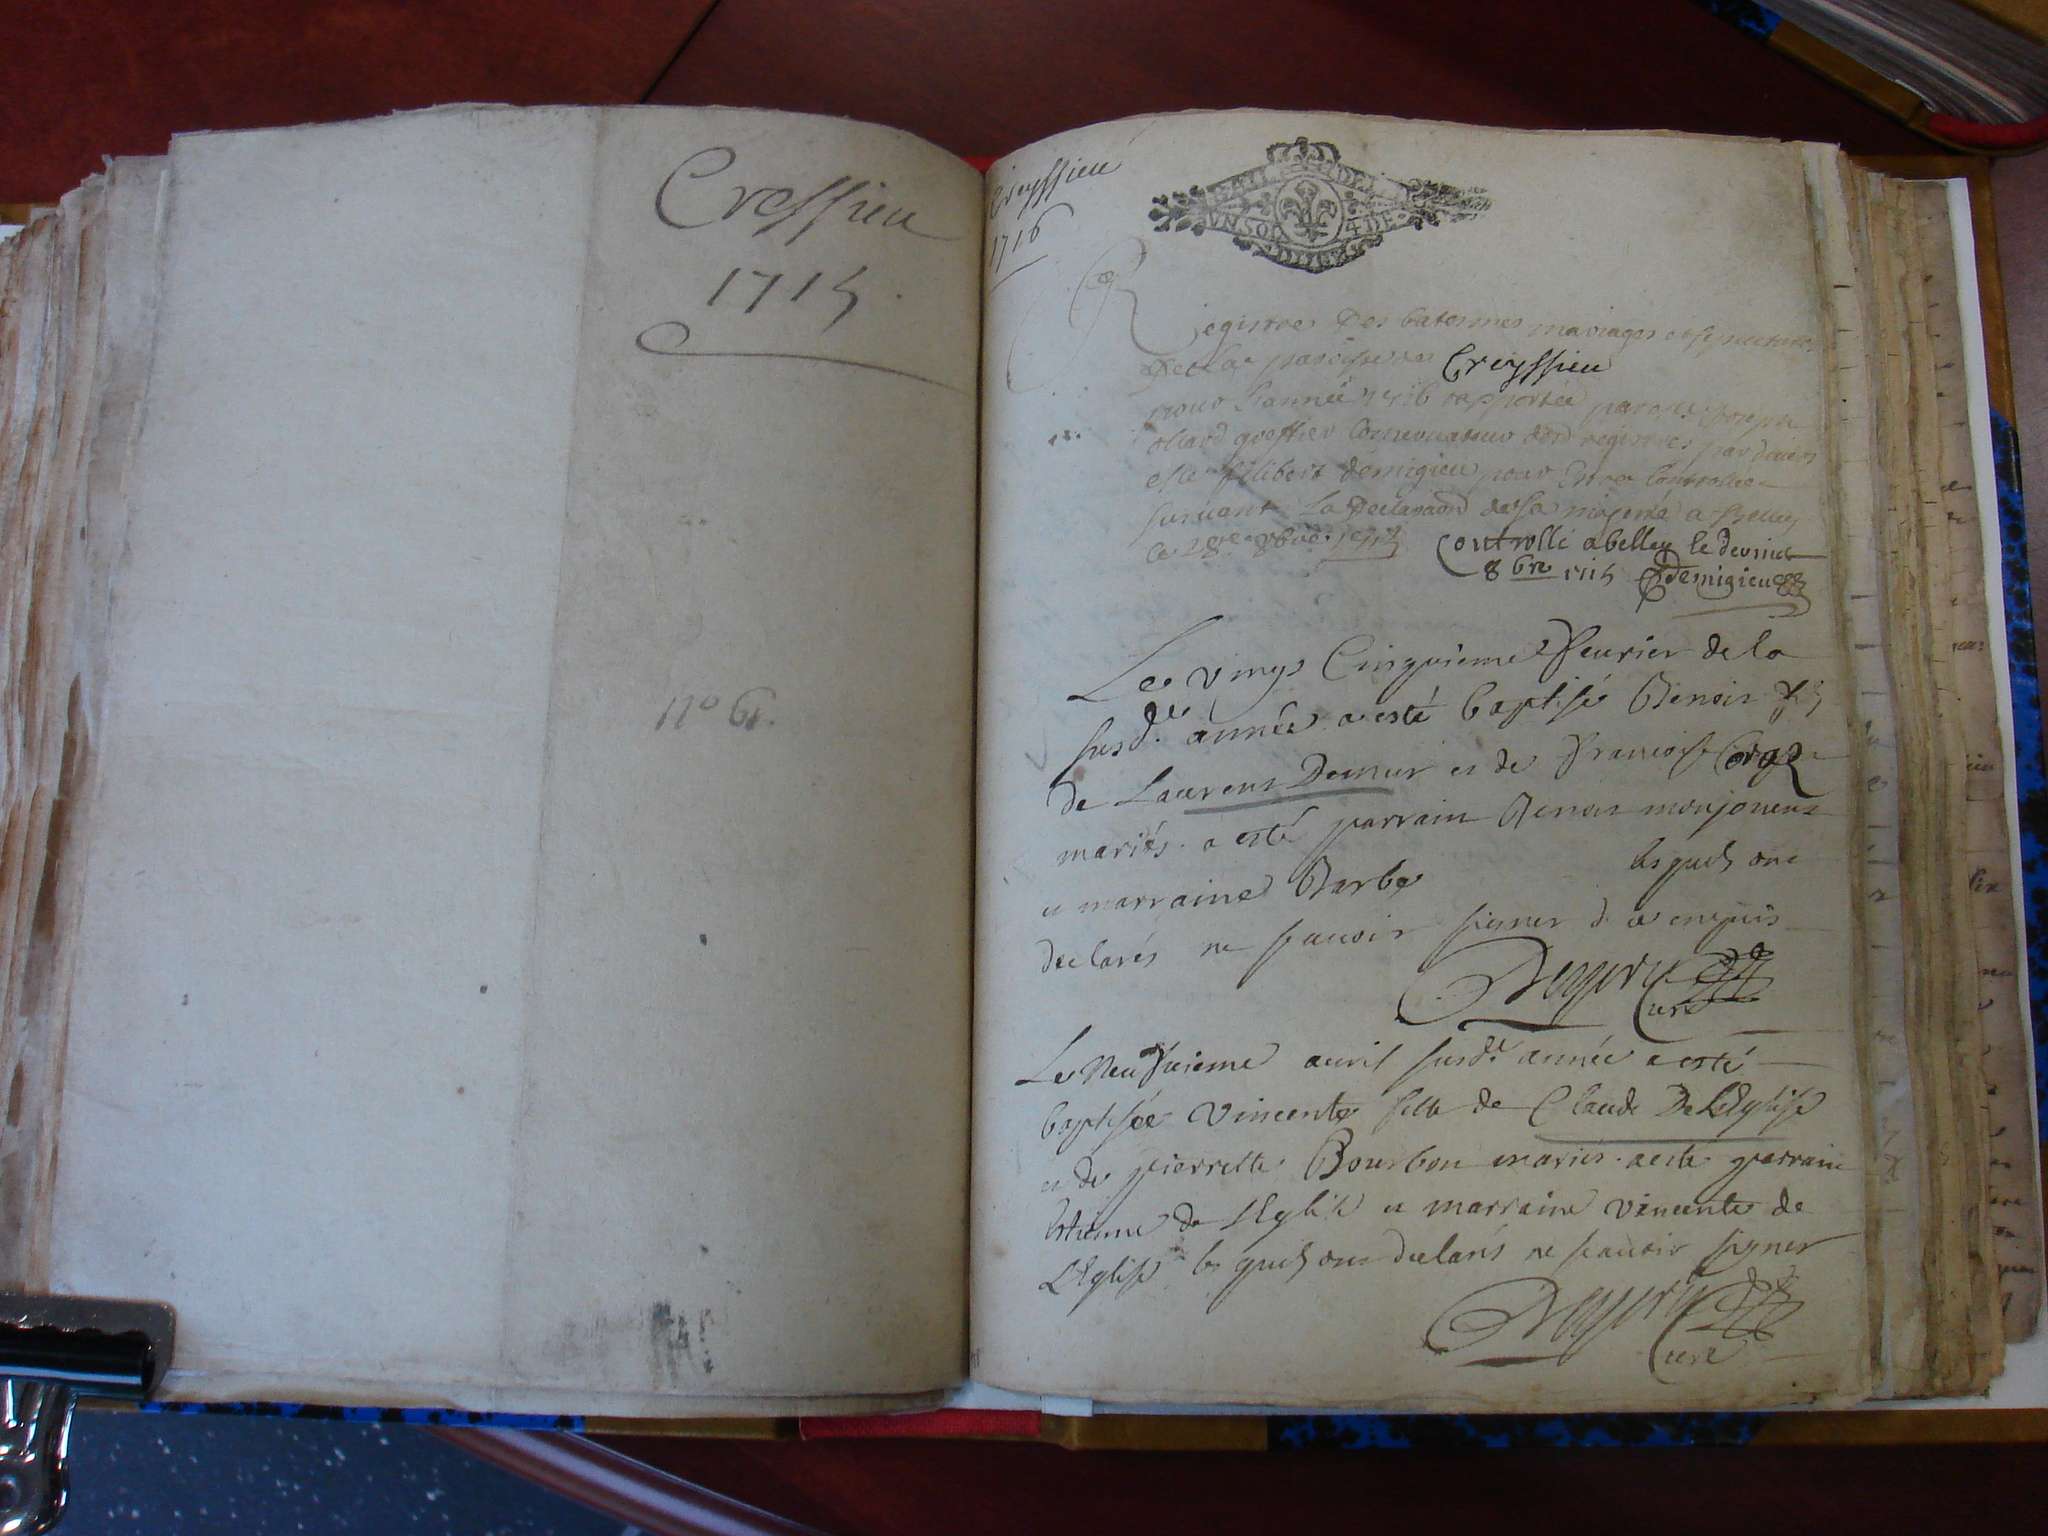 Cressieu
1715.
n° 6.
Creyssieu
1716
VN SOL 4 DE
Registre Des batesmes mariages et sepultures
De La paroisse de Creyssieu
pour Lannée 1716
greffier Conservateur desd registres
Filibert demigieu pour Estre Controllée
suivant La Declaration de sa majesté a Belley
le 28e 8bre 1715
Controllé a belley le
8bre 1715 Demigieu
Le vingt Cinquieme feurier de la
susd.e année a esté baptisé Benoit fils
de Laurent Demur et de Francoise
mariés. a esté parrain Benoit monjouent
et marraine Barbe lesquels ont
declarés ne scauoir signer de ce enquis
Curé
Le Neufuieme auril susd.e année a esté
baptisée Vincente fille de Claude De LEglise
et de pierrette Bourbon mariés. a esté parrain
Estienne de LEglise et marraine Vincente de
LEglise lesquels ont declarés ne scauoir signer
Curé